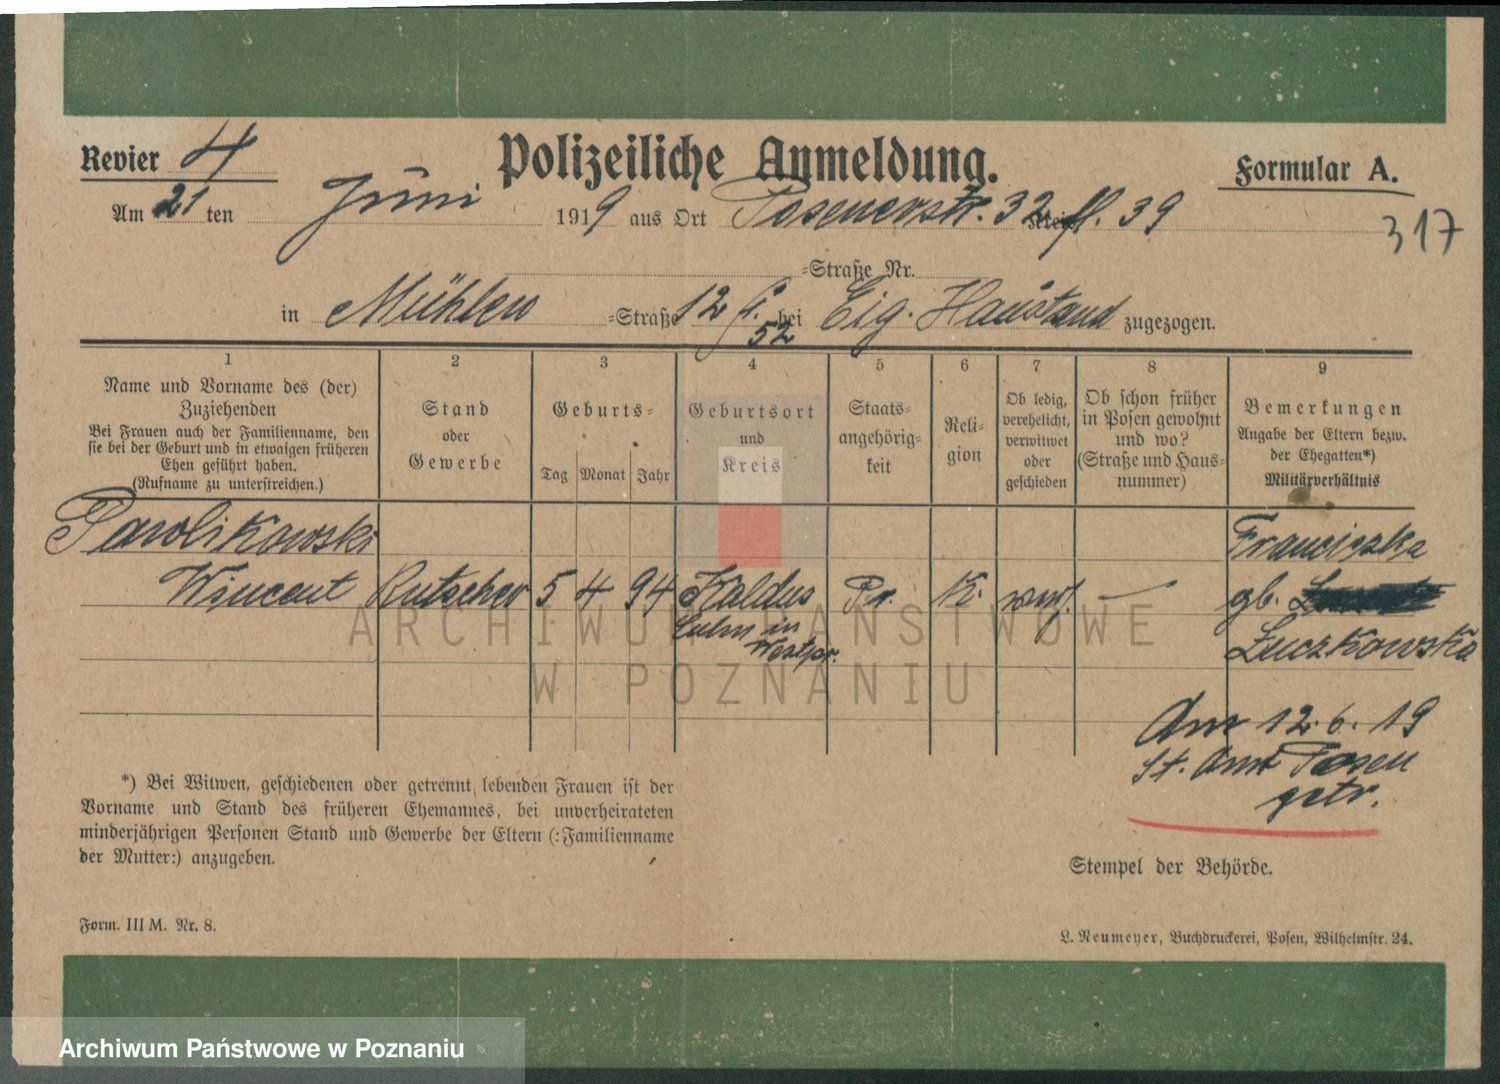 Revier 4
Polizeiliche Anmeldung.
Formular A.
Am 21 ten Juni 1919 aus Ort Posenerstr. 32 Kreis fl. 39
317
=Straße Nr.
in Mühlen =Straße 12 bei Eig. Hausstand zugezogen.
52
1 2 3 4 5 6 7 8 9
Name und Vorname des (der)
Zuziehenden
Bei Frauen auch der Familienname, den
sie bei der Geburt und in etwaigen früheren
Ehen geführt haben.
(Rufname zu unterstreichen.)
Stand
oder
Gewerbe
Geburts=
Tag Monat Jahr
Geburtsort
und
Kreis
Staats=
angehörig=
keit
Reli=
gion
Ob ledig,
verehelicht,
verwitwet
oder
geschieden
Ob schon früher
in Posen gewohnt
und wo?
(Straße und Haus=
nummer)
Bemerkungen
Angabe der Eltern bezw.
der Ehegatten*)
Militärverhältnis
Pawlikowski
Wincent Kutscher 5 4 94 Kaldus Pr. K. verh. —
Culm in
Westpr.
Franciszka
gb.
Łuczkowska
Am 12.6.19
St. Amt Posen
getr.
*) Bei Witwen, geschiedenen oder getrennt lebenden Frauen ist der
Vorname und Stand des früheren Ehemannes, bei unverheirateten
minderjährigen Personen Stand und Gewerbe der Eltern (:Familienname
der Mutter:) anzugeben.
Stempel der Behörde.
Form. III M. Nr. 8.
L. Neumeyer, Buchdruckerei, Posen, Wilhelmstr. 24.
ARCHIWUM PAŃSTWOWE
W POZNANIU
Archiwum Państwowe w Poznaniu